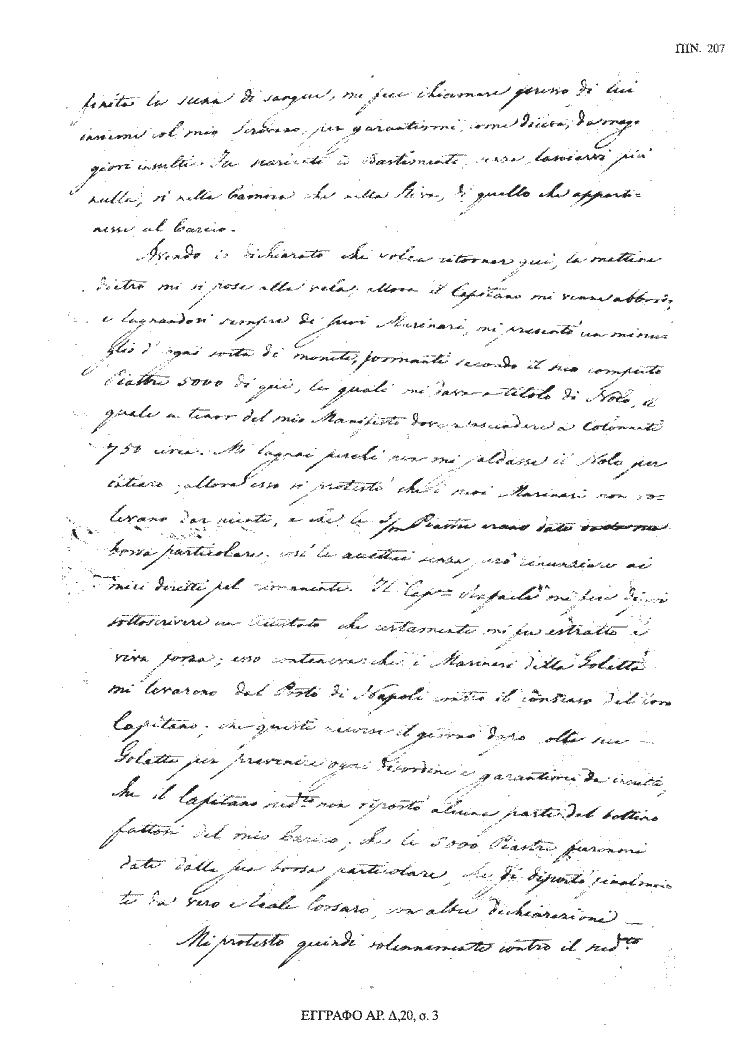 ΠΙΝ. 207
finita la scena di sangue, mi fece chiamare presso di lui
insieme col mio Scrivano, per garantirmi, come diceva, da mag-
giori insulti. Fu scaricato il Bastimento, senza lasciarvi più
nulla, sì nella Camera che nella Stiva, di quello che apparte-
nesse al Carico.
Avendo io dichiarato che volea ritornar qui, la mattina
dietro mi si pose alla vela; allora il Capitano mi venne abbordo,
e lagnandosi sempre di suoi Marinari, mi presentò un miscu-
glio d'ogni sorta di monete, formanti secondo il suo computo
Piastre 5000 di qui, le quali mi dava a titolo di Nolo, il
quale a tenor del mio Manifesto dovea ascendere a Colonnati
750 circa. Mi lagnai perchè non mi saldasse il Nolo per
intiero; allora esso si protestò che i suoi Marinari non vo-
levano dar niente, e che le 5/m Piastre erano date
borsa particolare. così le accettai senza però rinunziare ai
miei diritti pel rimanente. Il Cap.no mi fece di poi
sottoscrivere un Attestato che certamente mi fu estratto a
viva forza; esso conteneva: che i Marinari della Goletta
mi levarono dal Porto di Napoli contro il consenso del loro
Capitano; che questi venne il giorno dopo colla sua
Goletta per prevenire ogni disordine e garantirmi da insulti,
Che il Capitano sud.tto non riportò alcuna parte del bottino
fattosi del mio Carico; Che le 5000 Piastre furonmi
date dalla sua borsa particolare, che si diportò finalmen-
te da vero e leale Corsaro, con altre dichiarazioni —
Mi protesto quindi solennemente contro il sud.tto
ΕΓΓΡΑΦΟ ΑΡ. Δ,20, σ. 3